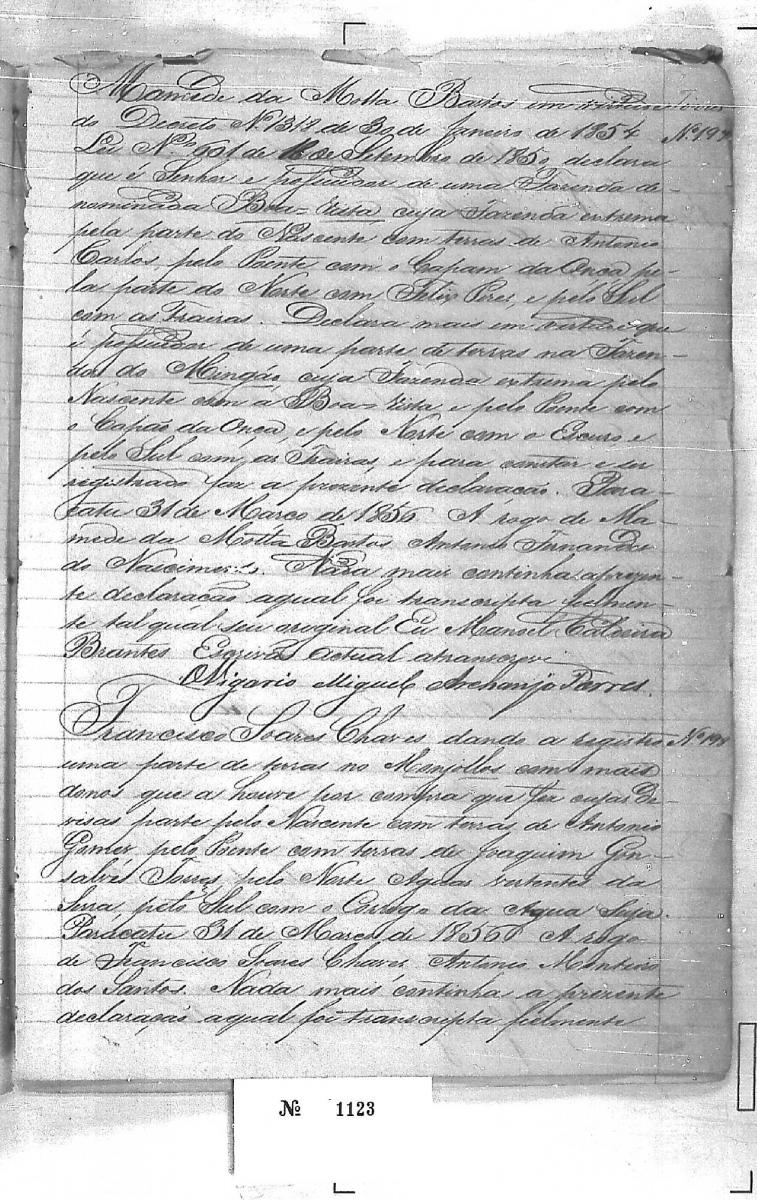 Mamede da Motta Bastos em virtude
do Decreto N. 1318 de 30 de Janeiro de 1854 Nº 197
Lei Nº 601 de 18 de Setembro de 1850, declara
que é Senhor e possuidor de uma Fazenda de-
nominada Boa-Vista, cuja Fazenda extrema
pela parte do Nascente com terras de Antonio
Carlos, pelo Poente com o Capam da Onça, pe-
la parte do Norte com Felix Pires, e pelo Sul
com as Trairas. Declara mais em virtude que
é possuidor de uma parte de terras na Fazen-
da do Mingáo, cuja Fazenda extrema pelo
Nascente com a Boa-Vista, e pelo Poente com
o Capão da Onça, e pelo Norte com o Escuro e
pelo Sul com as Trairas, e para constar e ser
registrado faz a prezente declaração. Para-
catu 31 de Março de 1856 A rogo de Ma-
mede da Motta Bastos Antonio Fernandes
do Nascimento. Nada mais continha a prezen-
te declaração aqual foi transcripta fielmen-
te tal qual seu original Eu Manoel Caldeira
Brantes Escrivão actual a transcrevi
O Vigario Miguel Archanjo Torres.
Francisco Soares Chaves dando a registro Nº 198
uma parte de terras no Monjollos com mais
donos que a houve por compra que fez cujas De-
visas parte pelo Nascente com terras de Antonio
Gomes, pelo Poente com terras de Joaquim Gon-
salves Torres, pelo Norte Aguas vertentes da
Serra, pelo Sul com o Corrego da Agua Suja.
Paracatu 31 de Março de 1856 A rogo
de Francisco Soares Chaves Antonio Monteiro
dos Santos. Nada mais continha a prezente
declaração aqual foi transcripta fielmente
Nº 1123